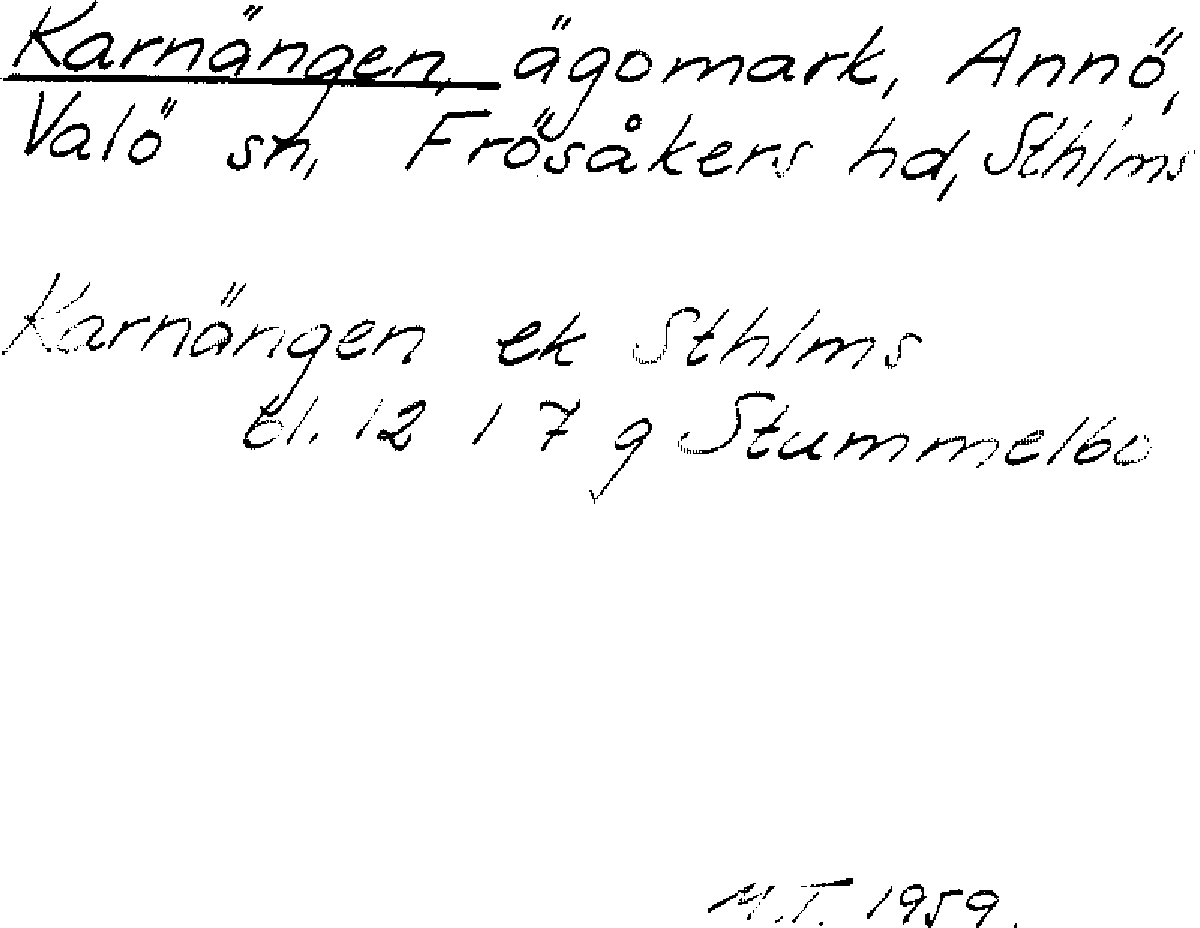 Karnängen, ägomark, Annö,
Valö sn, Frösåkers hd, Sthlms
Karnängen ek Sthlms
bl. 12 I 7 g Stummelbo
M.T. 1959.